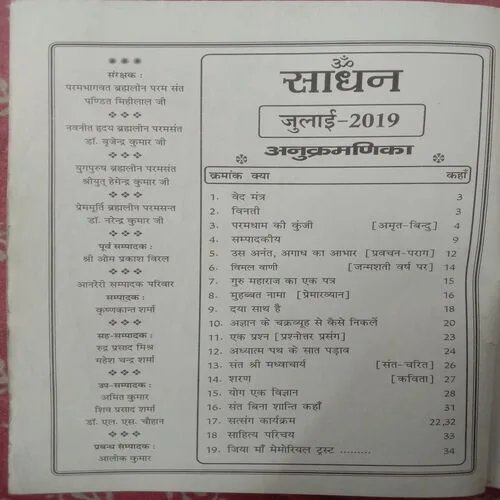 संरक्षक :
परमभागवत ब्रह्मलीन परम संत
पण्डित मिहीलाल जी
नवनीत हृदय ब्रह्मलीन परमसंत
डॉ. बृजेन्द्र कुमार जी
युगपुरुष ब्रह्मलीन परमसंत
श्रीयुत् हेमेन्द्र कुमार जी
प्रेममूर्ति ब्रह्मलीन परमसन्त
डॉ. नरेन्द्र कुमार जी
पूर्व सम्पादक :
श्री ओम प्रकाश विरल
आनरेरी सम्पादक परिवार
सम्पादक :
कृष्णकान्त शर्मा
सह-सम्पादक :
रुद्र प्रसाद मिश्र
महेश चन्द्र शर्मा
उप-सम्पादक :
अमित कुमार
शिव प्रसाद शर्मा
डॉ. एल. एस. चौहान
प्रबन्ध सम्पादक :
आलोक कुमार
ॐ
साधन
जुलाई-2019
अनुक्रमणिका
क्रमांक क्या कहाँ
1. वेद मंत्र 3
2. विनती 3
3. परमधाम की कुंजी [अमृत-बिन्दु] 4
4. सम्पादकीय 9
5. उस अनंत, अगाध का आभार [प्रवचन-पराग] 12
6. विमल वाणी [जन्मशती वर्ष पर] 14
7. गुरु महाराज का एक पत्र 15
8. मुहब्बत नामा [प्रेमारव्यान] 16
9. दया साथ है 18
10. अज्ञान के चक्रव्यूह से कैसे निकलें 20
11. एक प्रश्न [प्रश्नोत्तर प्रसंग] 23
12. अध्यात्म पथ के सात पड़ाव 24
13. संत श्री मध्वाचार्य [संत-चरित] 26
14. शरण [कविता] 27
15. योग एक विज्ञान 28
16. संत बिना शान्ति कहाँ 31
17. सत्संग कार्यक्रम 22,32
18 साहित्य परिचय 33
19. जिया माँ मेमोरियल ट्रस्ट ......... 34